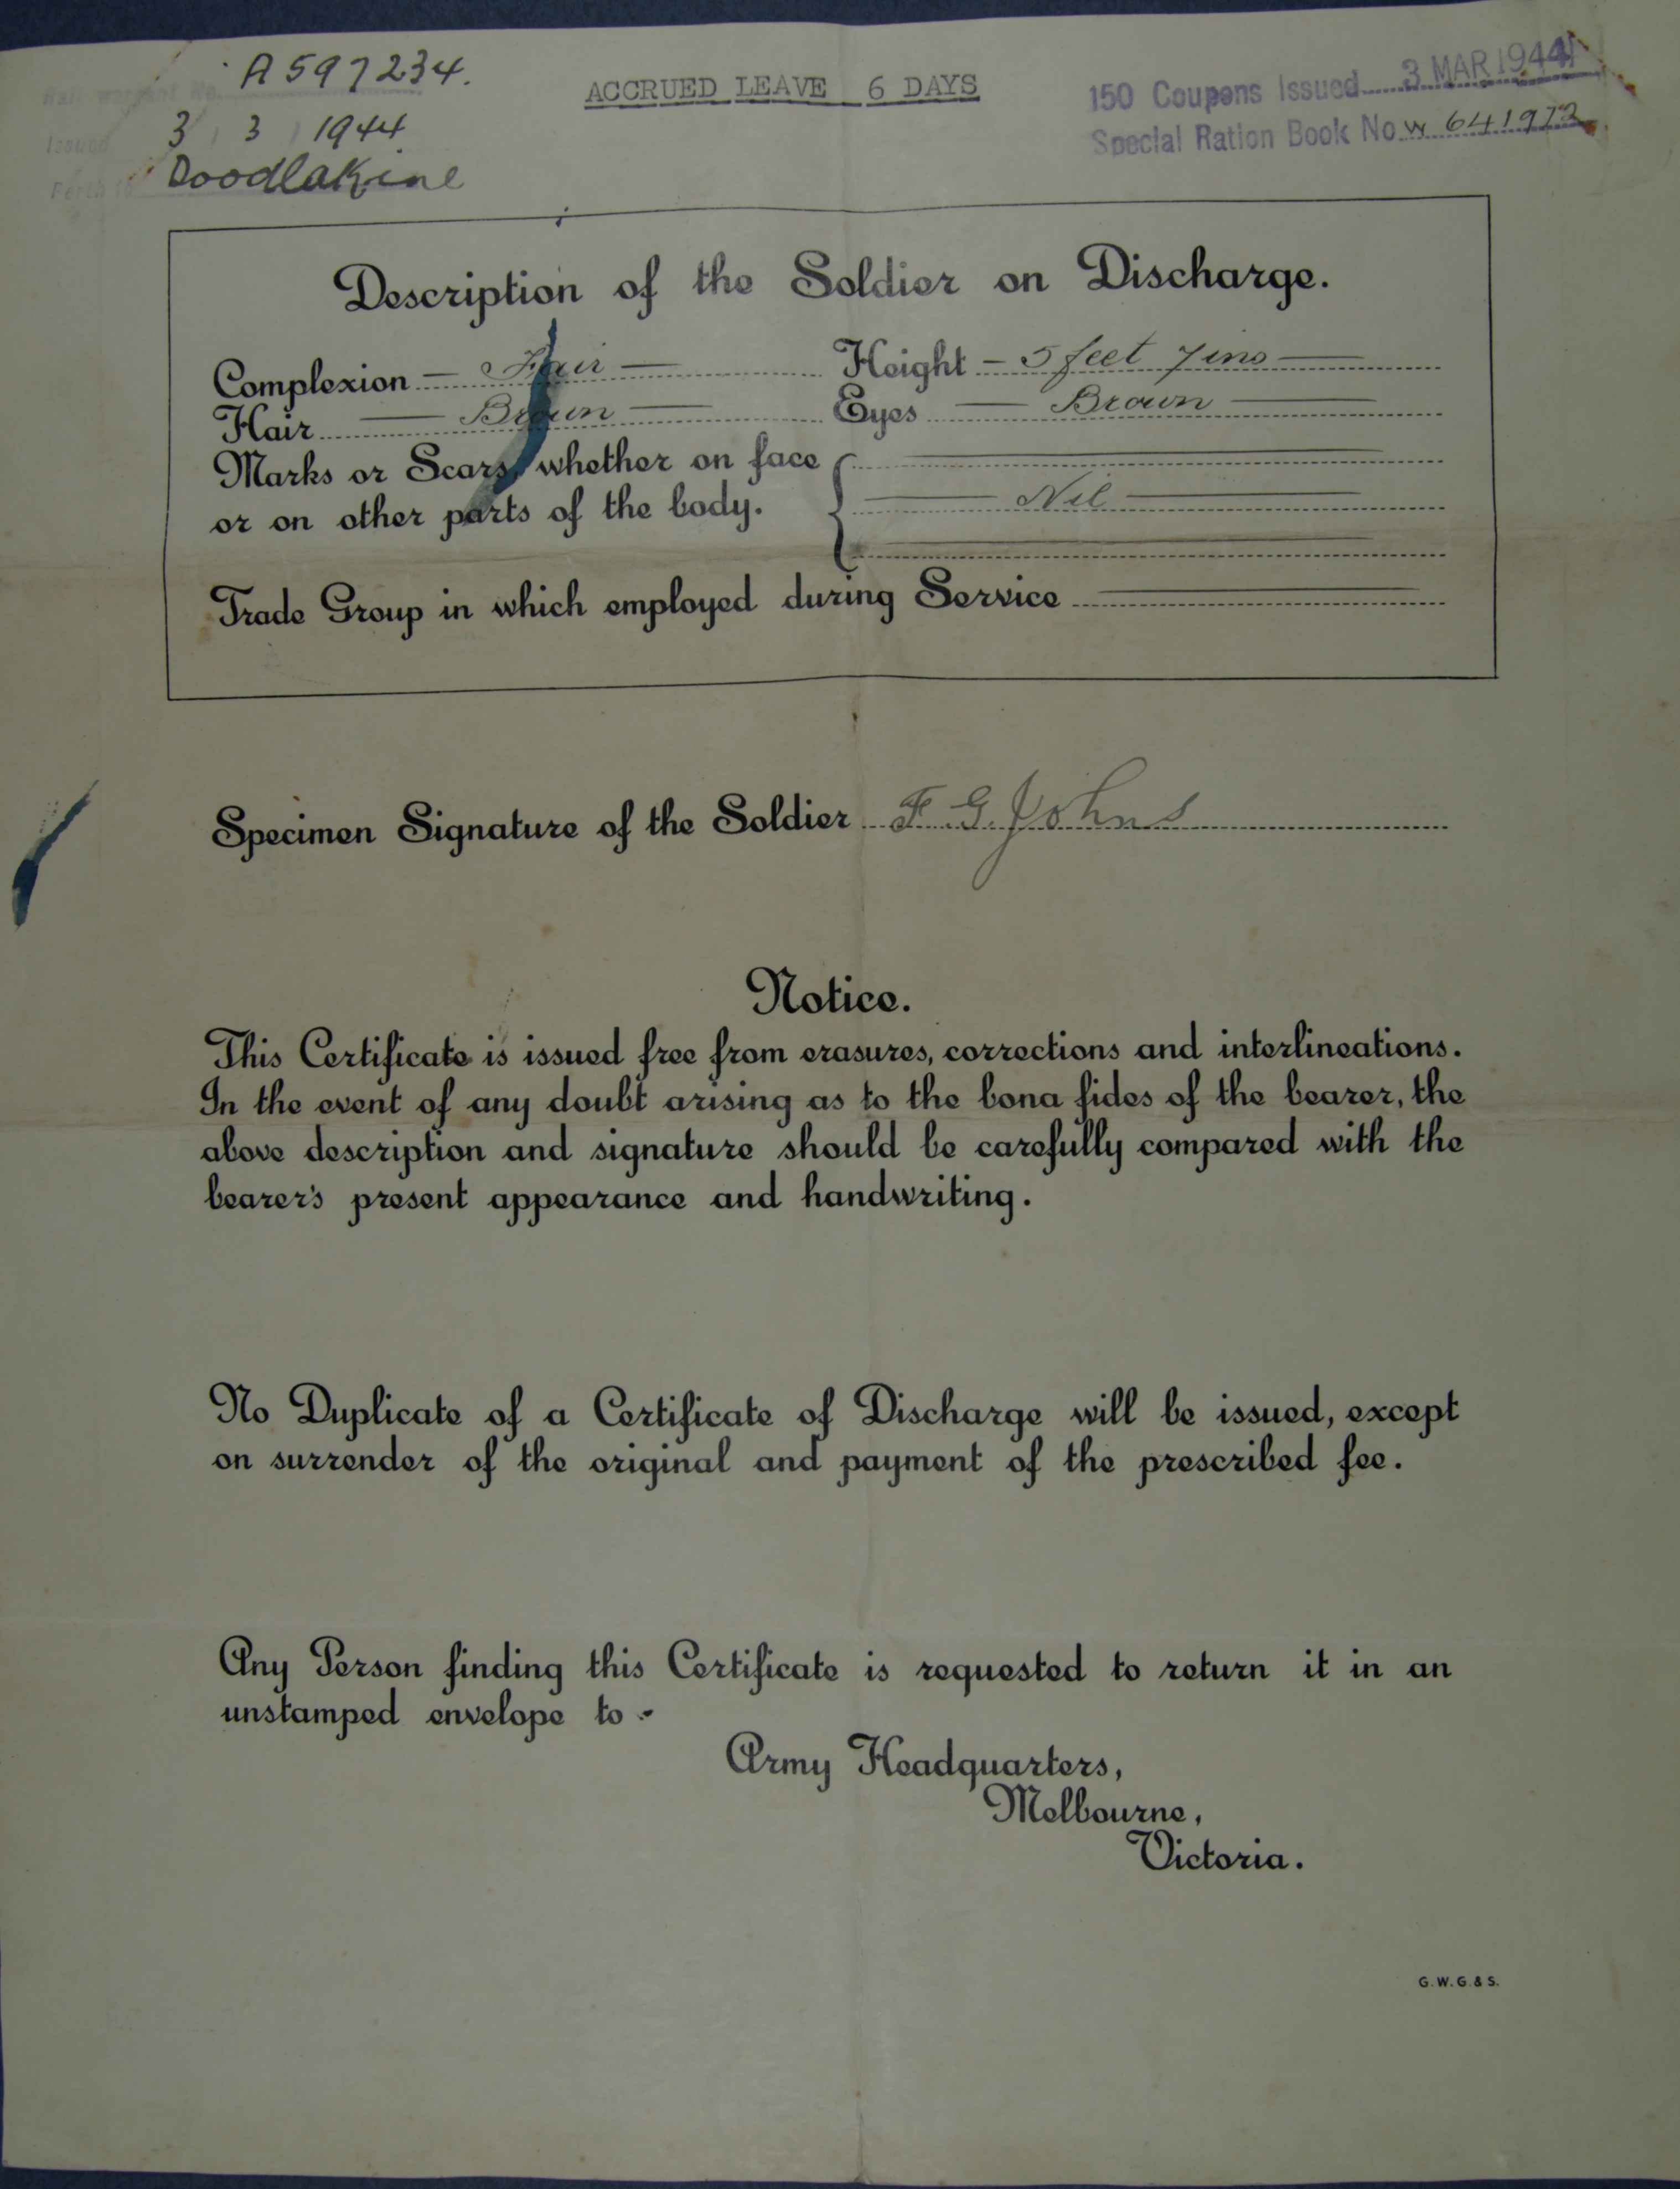 Rail warrant No. A597234.
Issued 3 3 1944
Perth to Doodlakine
ACCRUED LEAVE 6 DAYS
150 Coupons Issued 3 MAR 1944
Special Ration Book No W 641972
Description of the Soldier on Discharge.
Complexion — Fair — Height — 5 feet 7 ins —
Hair — Brown — Eyes — Brown —
Marks or Scars, whether on face
or on other parts of the body. — Nil —
Trade Group in which employed during Service
Specimen Signature of the Soldier F. G. Johns
Notice.
This Certificate is issued free from erasures, corrections and interlineations.
In the event of any doubt arising as to the bona fides of the bearer, the
above description and signature should be carefully compared with the
bearer's present appearance and handwriting.
No Duplicate of a Certificate of Discharge will be issued, except
on surrender of the original and payment of the prescribed fee.
Any Person finding this Certificate is requested to return it in an
unstamped envelope to -
Army Headquarters,
Melbourne,
Victoria.
G.W.G & S.